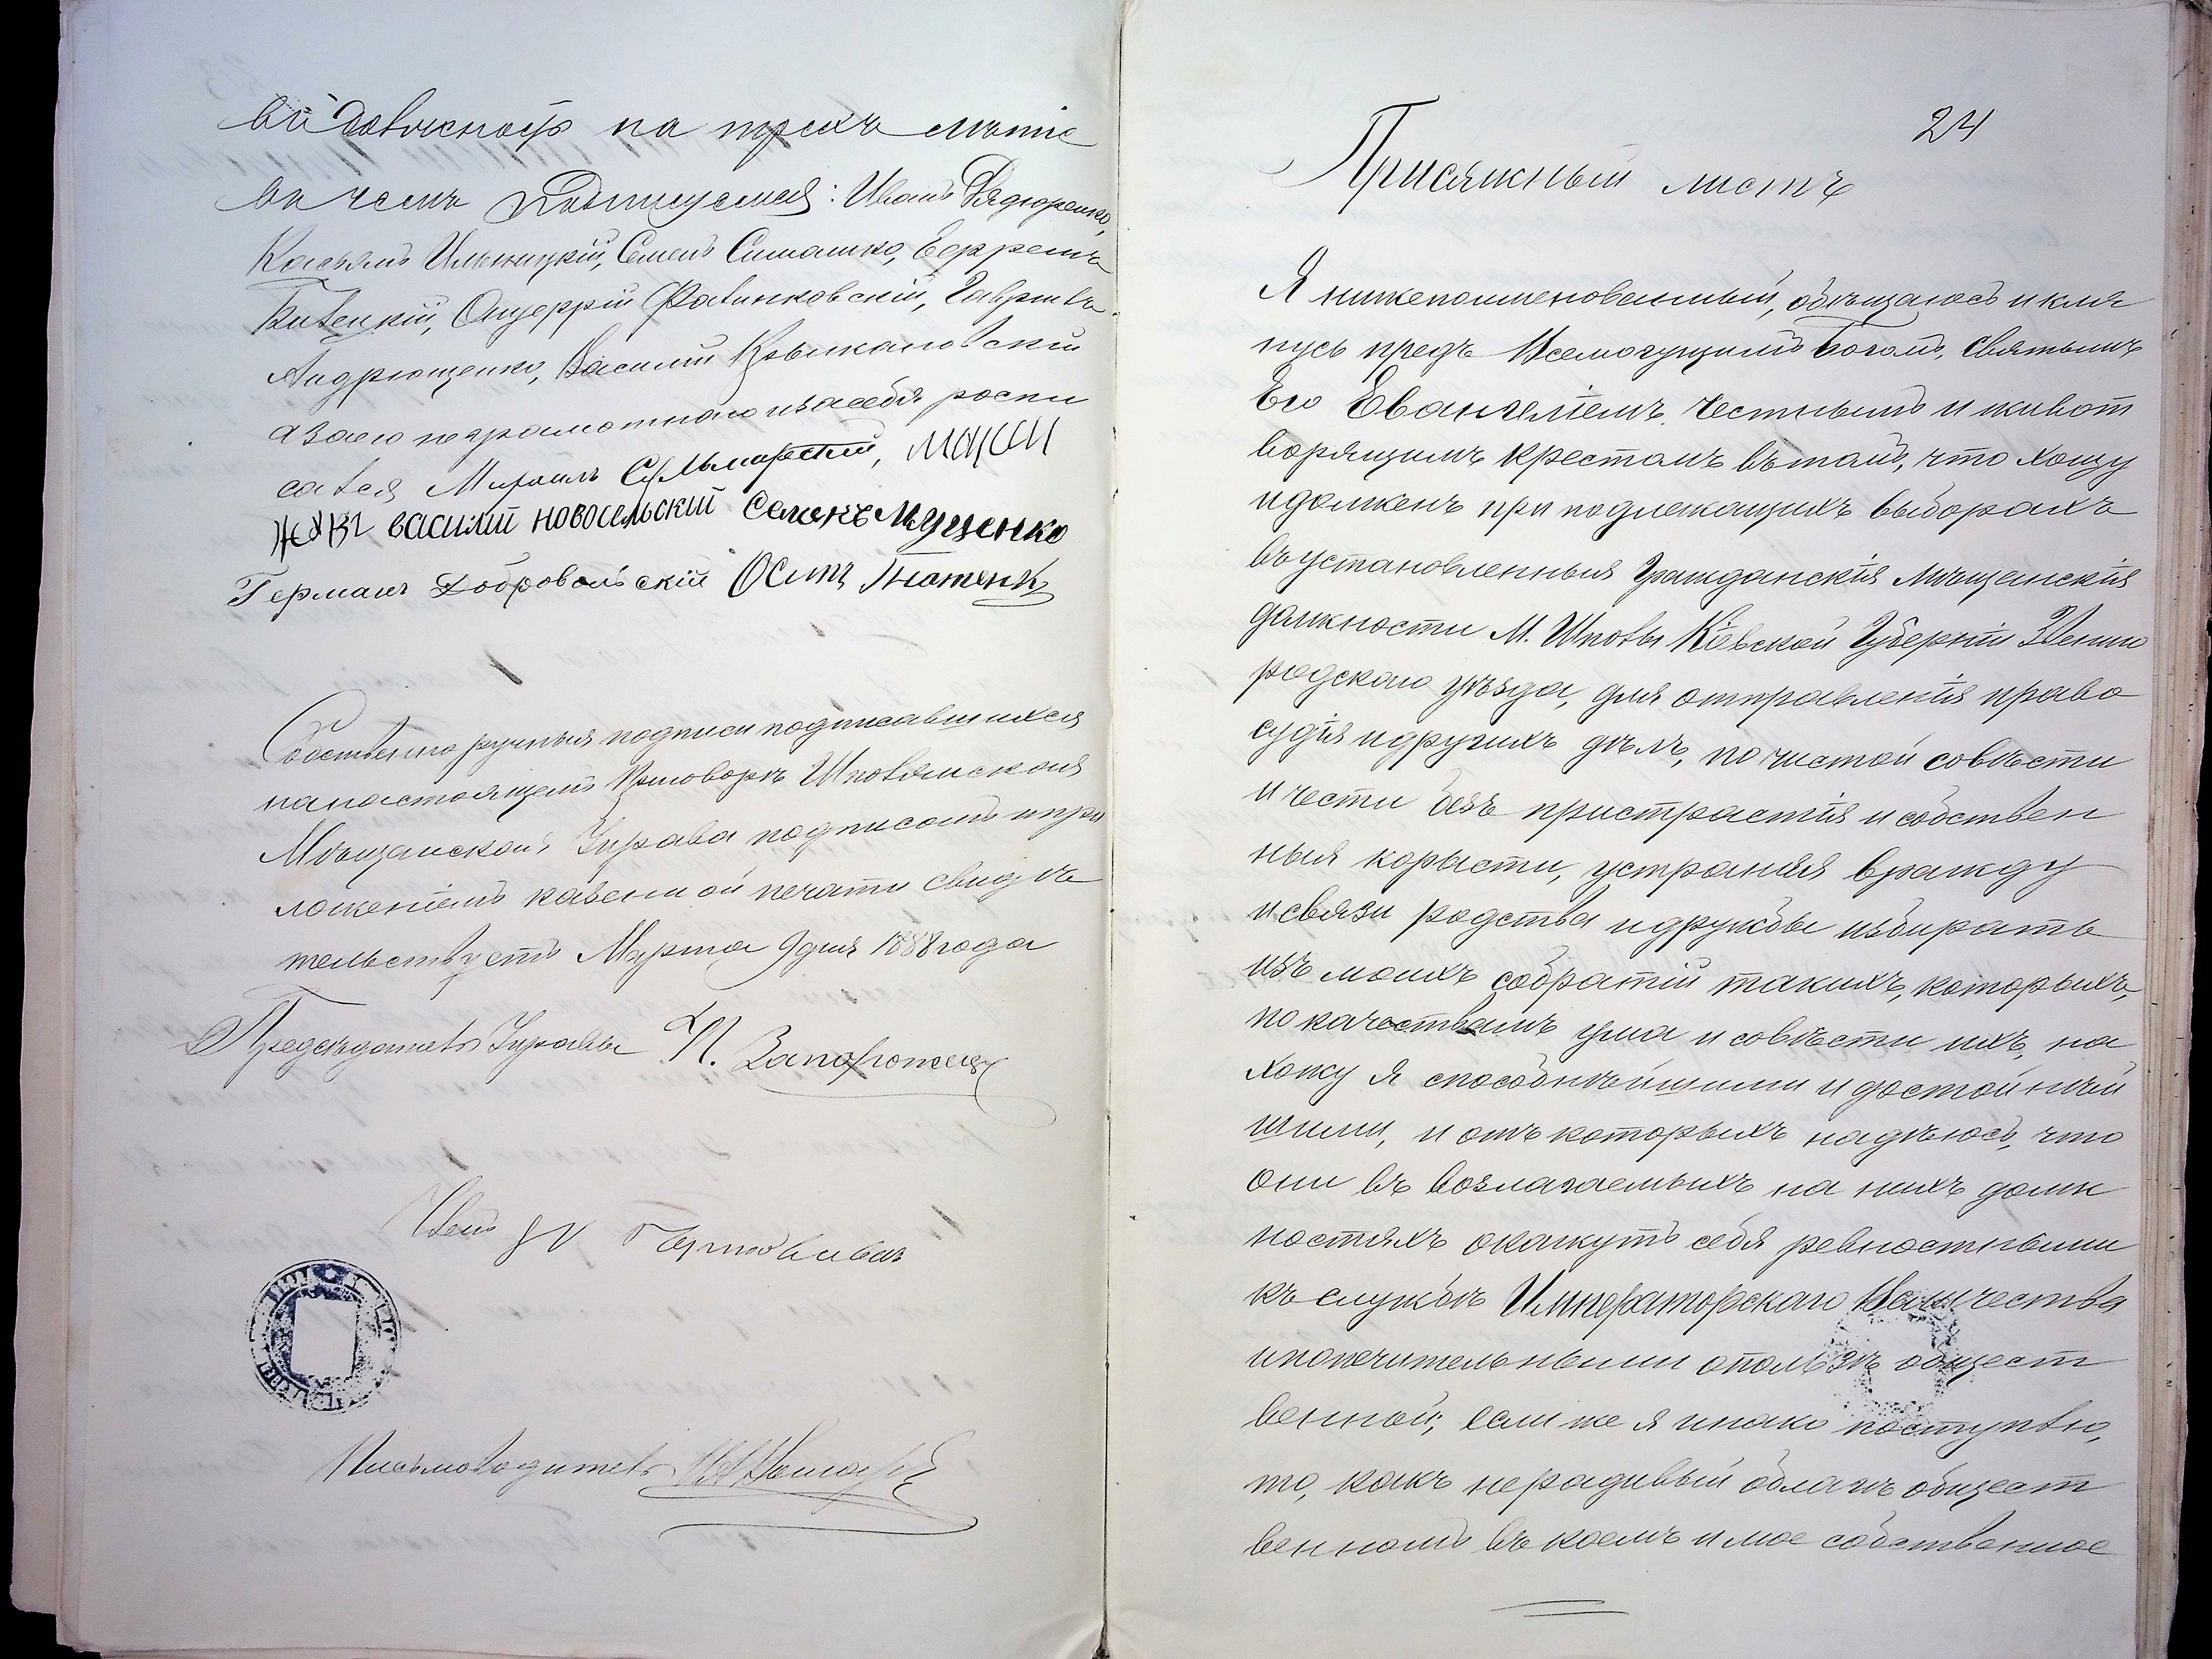 на трехъ летіе
въ чемъ подписуемся: Иванъ
Касьянъ Ильницкій, Семенъ Симашко, Ефремъ
Онуфрій Фалинковскій, Гаврилъ
Андрющенко, Василій
а за него неграмотнаго и за себя роспи
сался Михаилъ
василий новосельский Семенъ Мяценко
Германъ Добровольскій Осипъ Гнатенко
Собственно ручныя подписи подписавшихся
на настоящемъ приговоръ Шполянская
Мѣщанская Управа подписомъ и при
ложеніемъ казенной печати свидѣ
тельствуетъ Марта 9 дня 1888 года
Предсѣдатель Управы П. Запорожецъ
Членъ
Письмоводитель
24
Присяжный листъ
Я нижепоименованный, обѣщаюсь и кля
нусь предъ Всемогущимъ Богомъ, Святымъ
Его Евангеліемъ Честнымъ и живот
ворящимъ Крестомъ въ томъ, что хощу
и долженъ при подлежащихъ выборахъ
въ установленныя Гражданскія Мѣщанскія
должности М. Шполы Кіевской Губерніи Звениго
родскаго уѣзда, для отправленія право
судія и другихъ дѣлъ, по чистой совѣсти
и чести безъ пристрастія и собствен
ныя корысти, устраняя вражду
и связи родства и дружбы избирать
изъ моихъ собратій такихъ, которыхъ,
по качествамъ ума и совѣсти ихъ, на
хожу я способнѣйшими и достойнѣй
шими, и отъ которыхъ надѣюсь, что
они въ возлагаемыхъ на нихъ долж
ностяхъ окажутъ себя ревностными
къ службѣ Императорскаго Величества
и попечительными о пользѣ общест
венной; если же я инако поступлю,
то, какъ нерадивый о благѣ общест
венномъ въ коемъ и мое собственное